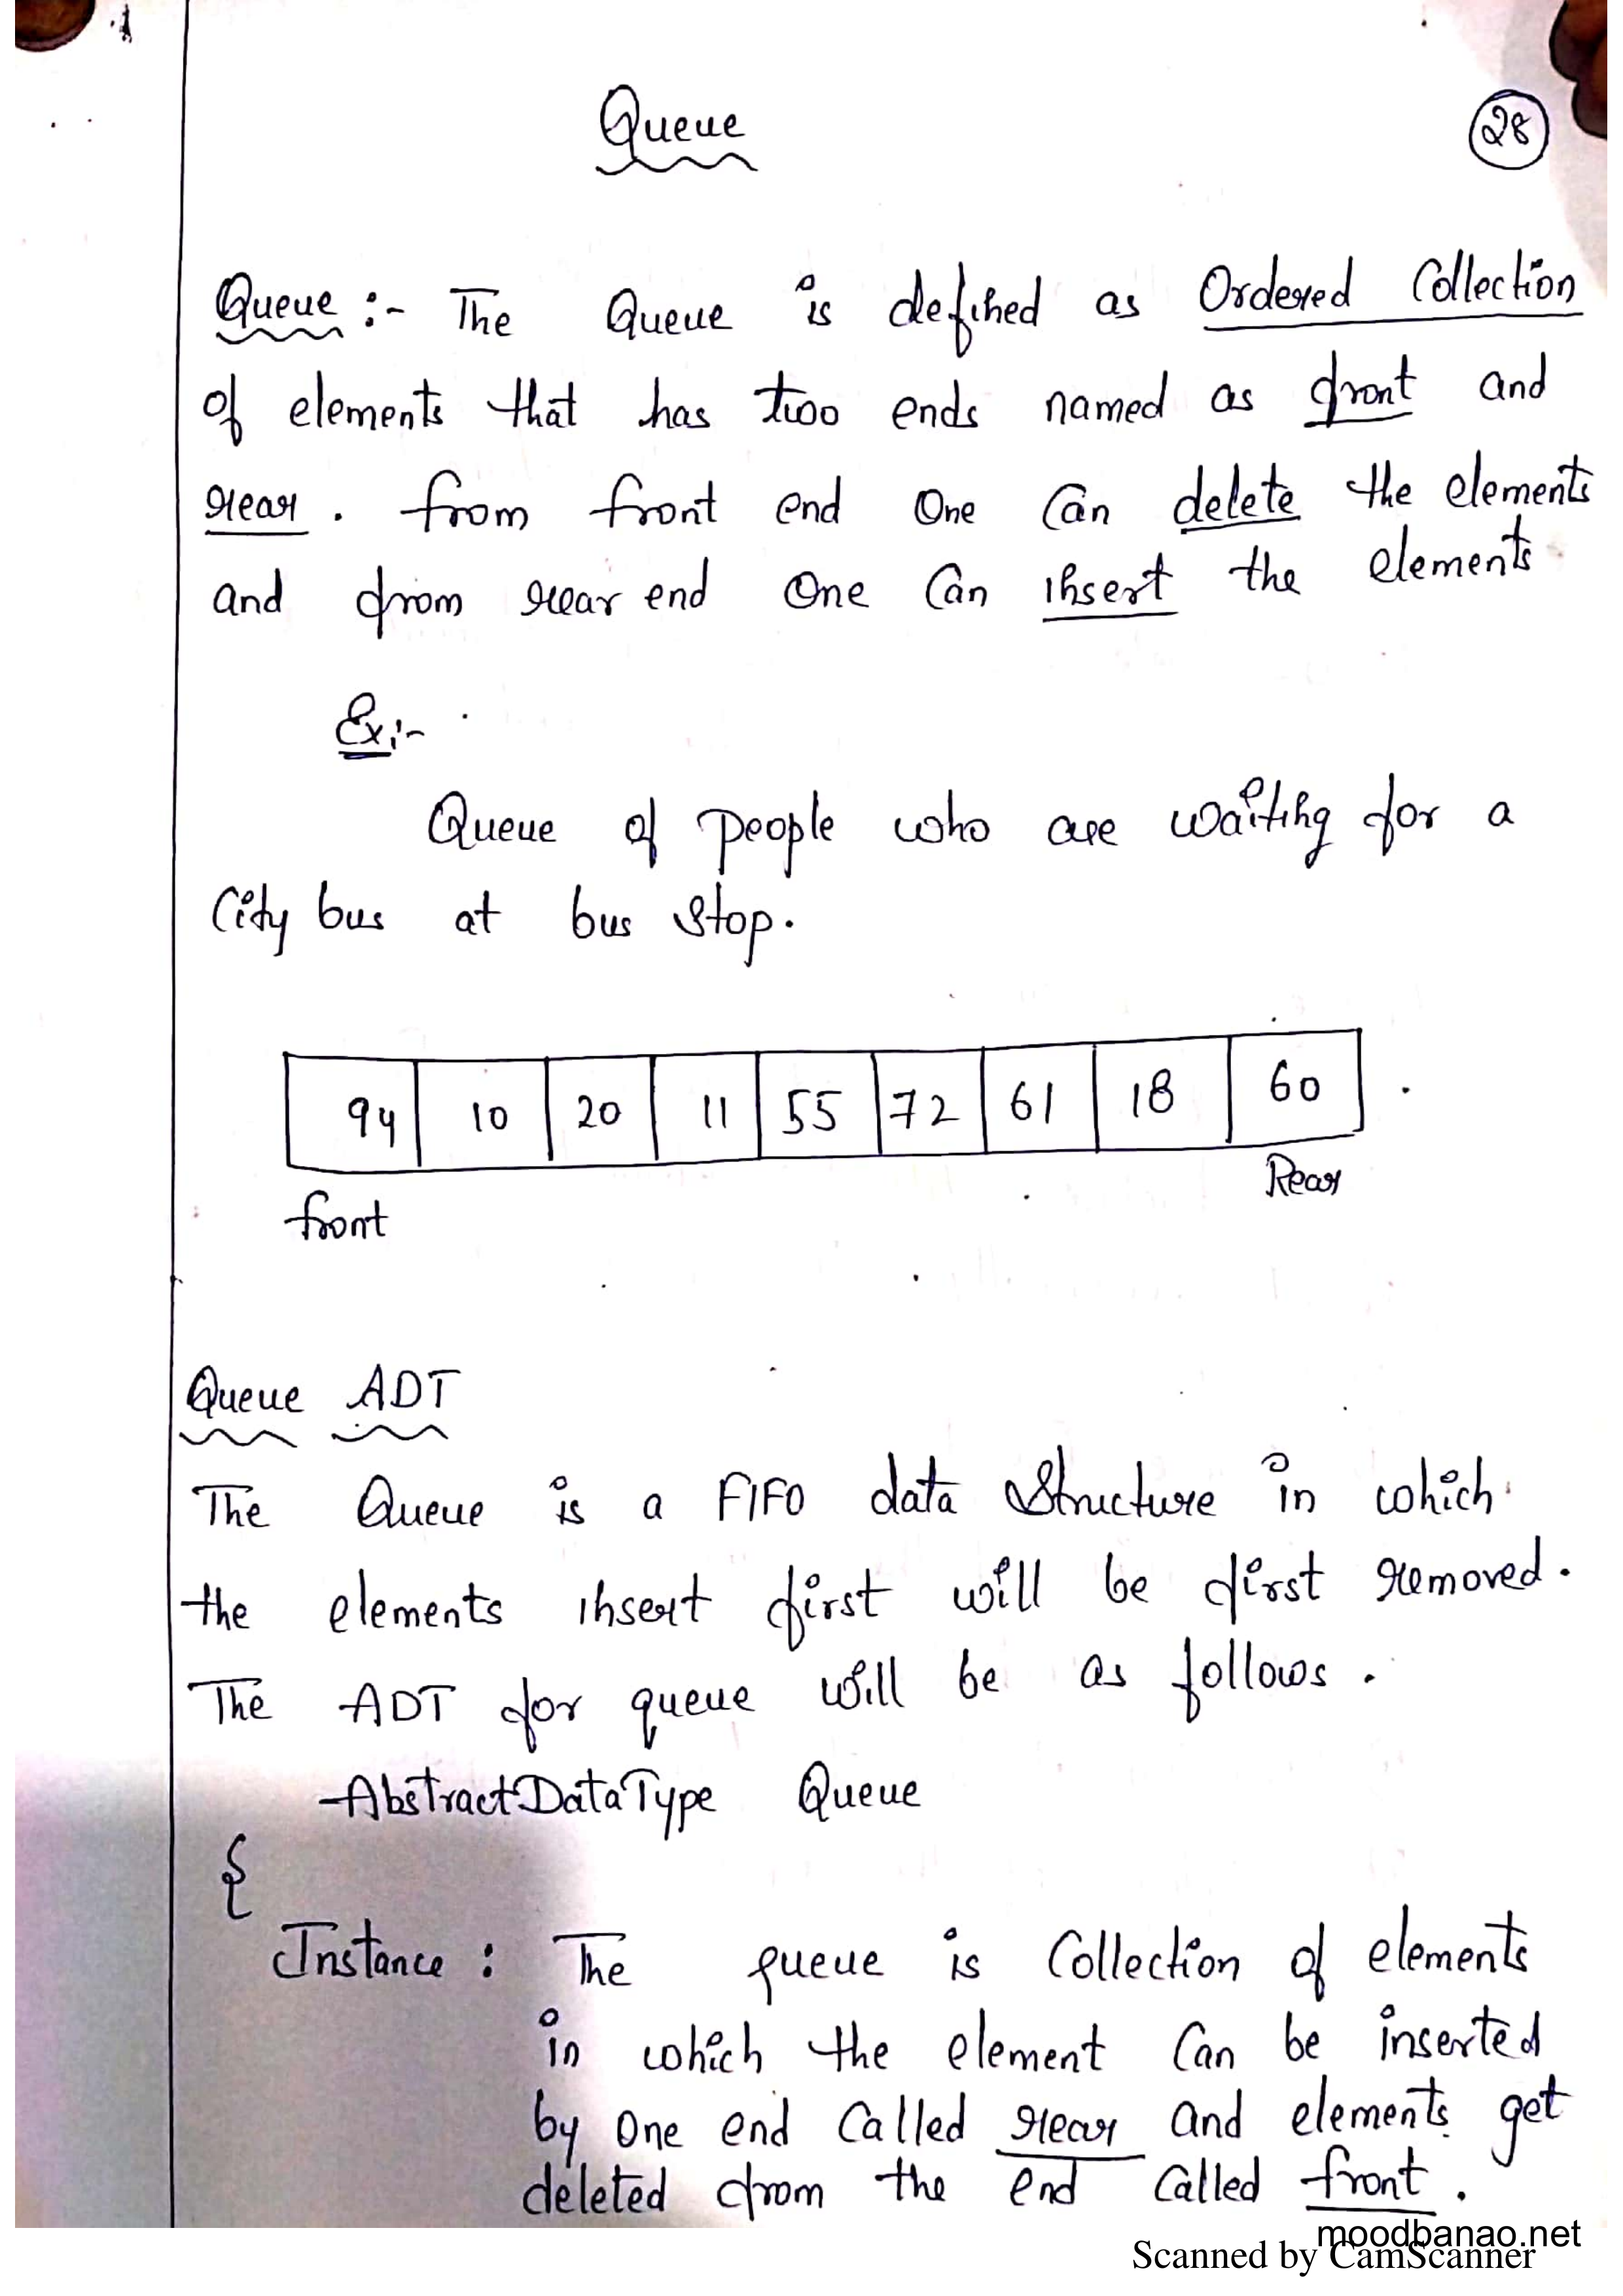 Queue
28
Queue :- The Queue is defined as Ordered Collection
of elements that has two ends named as front and
rear. From front end one can delete the elements
and from rear end one can insert the elements
Ex:-
Queue of people who are waiting for a
City bus at bus stop.
94 10 20 11 55 72 61 18 60
Rear
front
Queue ADT
The Queue is a FIFO data structure in which
the elements insert first will be first removed.
The ADT for queue will be as follows.
AbstractDataType Queue
{
Instance : The queue is Collection of elements
in which the element can be inserted
by one end called rear and elements get
deleted from the end called front.
moodbanao.net
Scanned by CamScanner